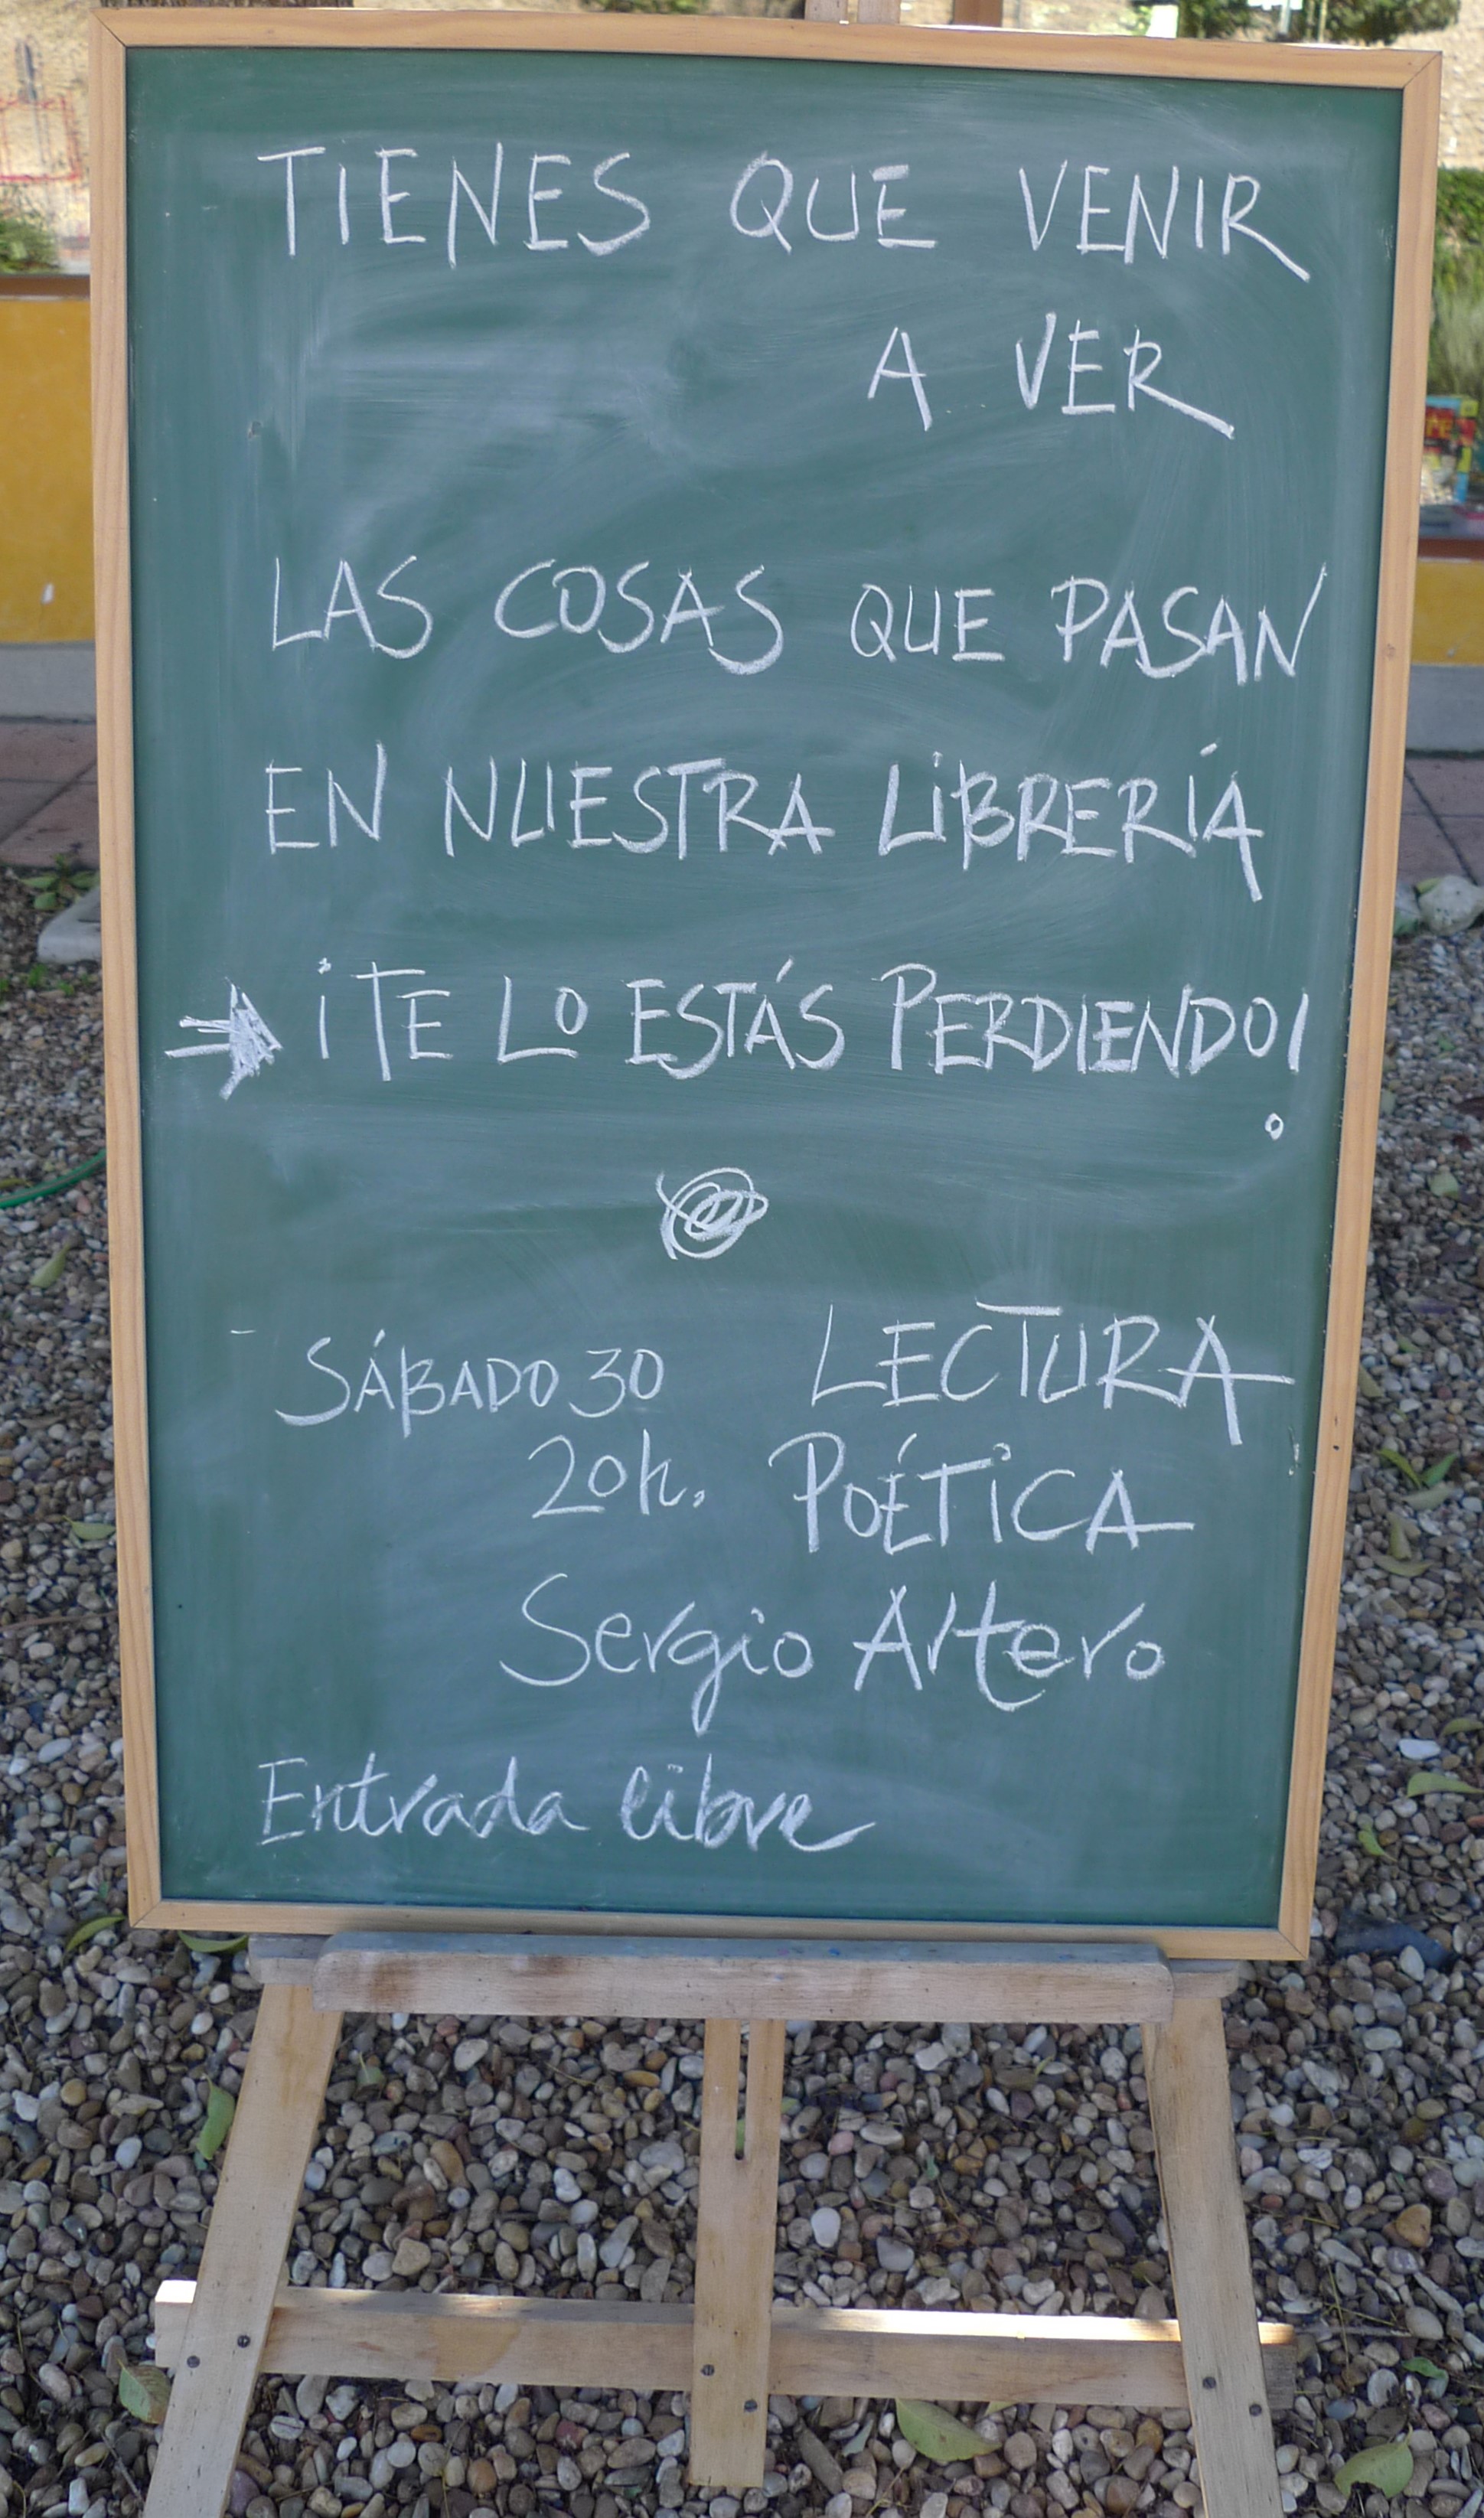 TIENES QUE VENIR
A VER
LAS COSAS QUE PASAN
EN NUESTRA LIBRERÍA
→ ¡TE LO ESTÁS PERDIENDO!
- SÁBADO 30 LECTURA
20h. POÉTICA
Sergio Artero
Entrada libre